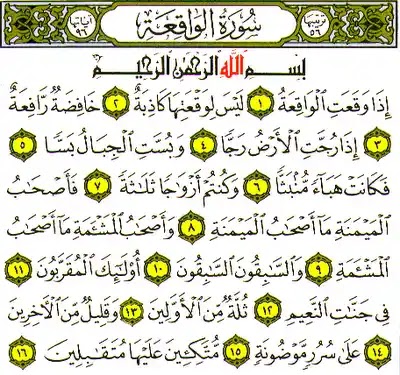 ترتيبها ٥٦ سُورَةُ الوَاقِعَة آياتها ٩٦
بِسْمِ اللَّهِ الرَّحْمَنِ الرَّحِيمِ
إِذَا وَقَعَتِ الْوَاقِعَةُ ١ لَيْسَ لِوَقْعَتِهَا كَاذِبَةٌ ٢ خَافِضَةٌ رَّافِعَةٌ
٣ إِذَا رُجَّتِ الْأَرْضُ رَجًّا ٤ وَبُسَّتِ الْجِبَالُ بَسًّا ٥
فَكَانَتْ هَبَاءً مُّنبَثًّا ٦ وَكُنتُمْ أَزْوَاجًا ثَلَاثَةً ٧ فَأَصْحَابُ
الْمَيْمَنَةِ مَا أَصْحَابُ الْمَيْمَنَةِ ٨ وَأَصْحَابُ الْمَشْـَٔمَةِ مَا أَصْحَابُ
الْمَشْـَٔمَةِ ٩ وَالسَّابِقُونَ السَّابِقُونَ ١٠ أُولَٰئِكَ الْمُقَرَّبُونَ ١١
فِي جَنَّاتِ النَّعِيمِ ١٢ ثُلَّةٌ مِّنَ الْأَوَّلِينَ ١٣ وَقَلِيلٌ مِّنَ الْآخِرِينَ
١٤ عَلَىٰ سُرُرٍ مَّوْضُونَةٍ ١٥ مُّتَّكِـِٔينَ عَلَيْهَا مُتَقَابِلِينَ ١٦